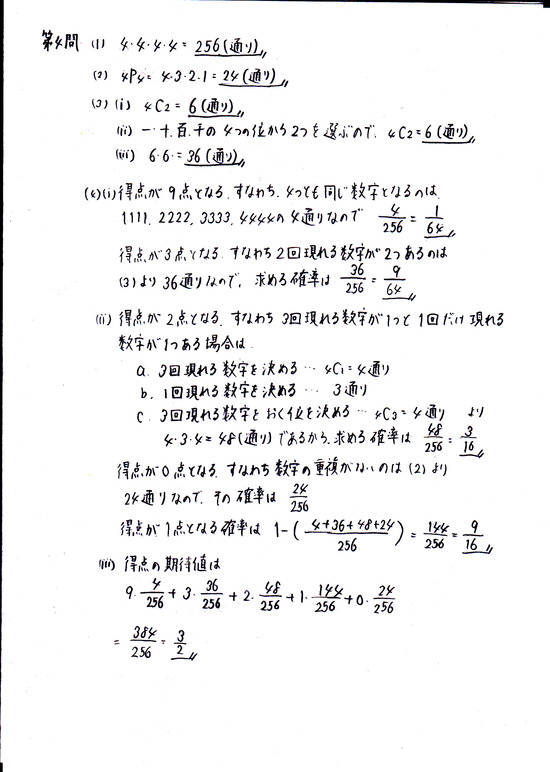 第4問 (1) 4・4・4・4 = 256(通り)
(2) 4P4 = 4・3・2・1 = 24(通り)
(3) (i) 4C2 = 6(通り)
(ii) 一・十・百・千の 4つの位から2つを選ぶので、4C2 = 6(通り)
(iii) 6・6・= 36(通り)
(4)(i) 得点が 9点となる、すなわち、4つとも同じ数字となるのは、
1111, 2222, 3333, 4444の4通りなので 4/256 = 1/64
得点が3点となる、すなわち2回現れる数字が2つあるのは
(3)より 36通りなので、求める確率は 36/256 = 9/64
(ii) 得点が 2点となる、すなわち 3回現れる数字が1つと 1回だけ現れる
数字が1つある場合は、
a. 3回現れる数字を決める … 4C1 = 4通り
b. 1回現れる数字を決める … 3通り
c. 3回現れる数字をおく位を決める … 4C3 = 4通り より
4・3・4 = 48(通り)であるから、求める確率は 48/256 = 3/16
得点が0点となる、すなわち数字の重複がないのは(2)より
24通りなので、その確率は 24/256
得点が1点となる確率は 1-(4+36+48+24/256) = 144/256 = 9/16
(iii) 得点の期待値は
9・4/256 + 3・36/256 + 2・48/256 + 1・144/256 + 0・24/256
= 384/256 = 3/2